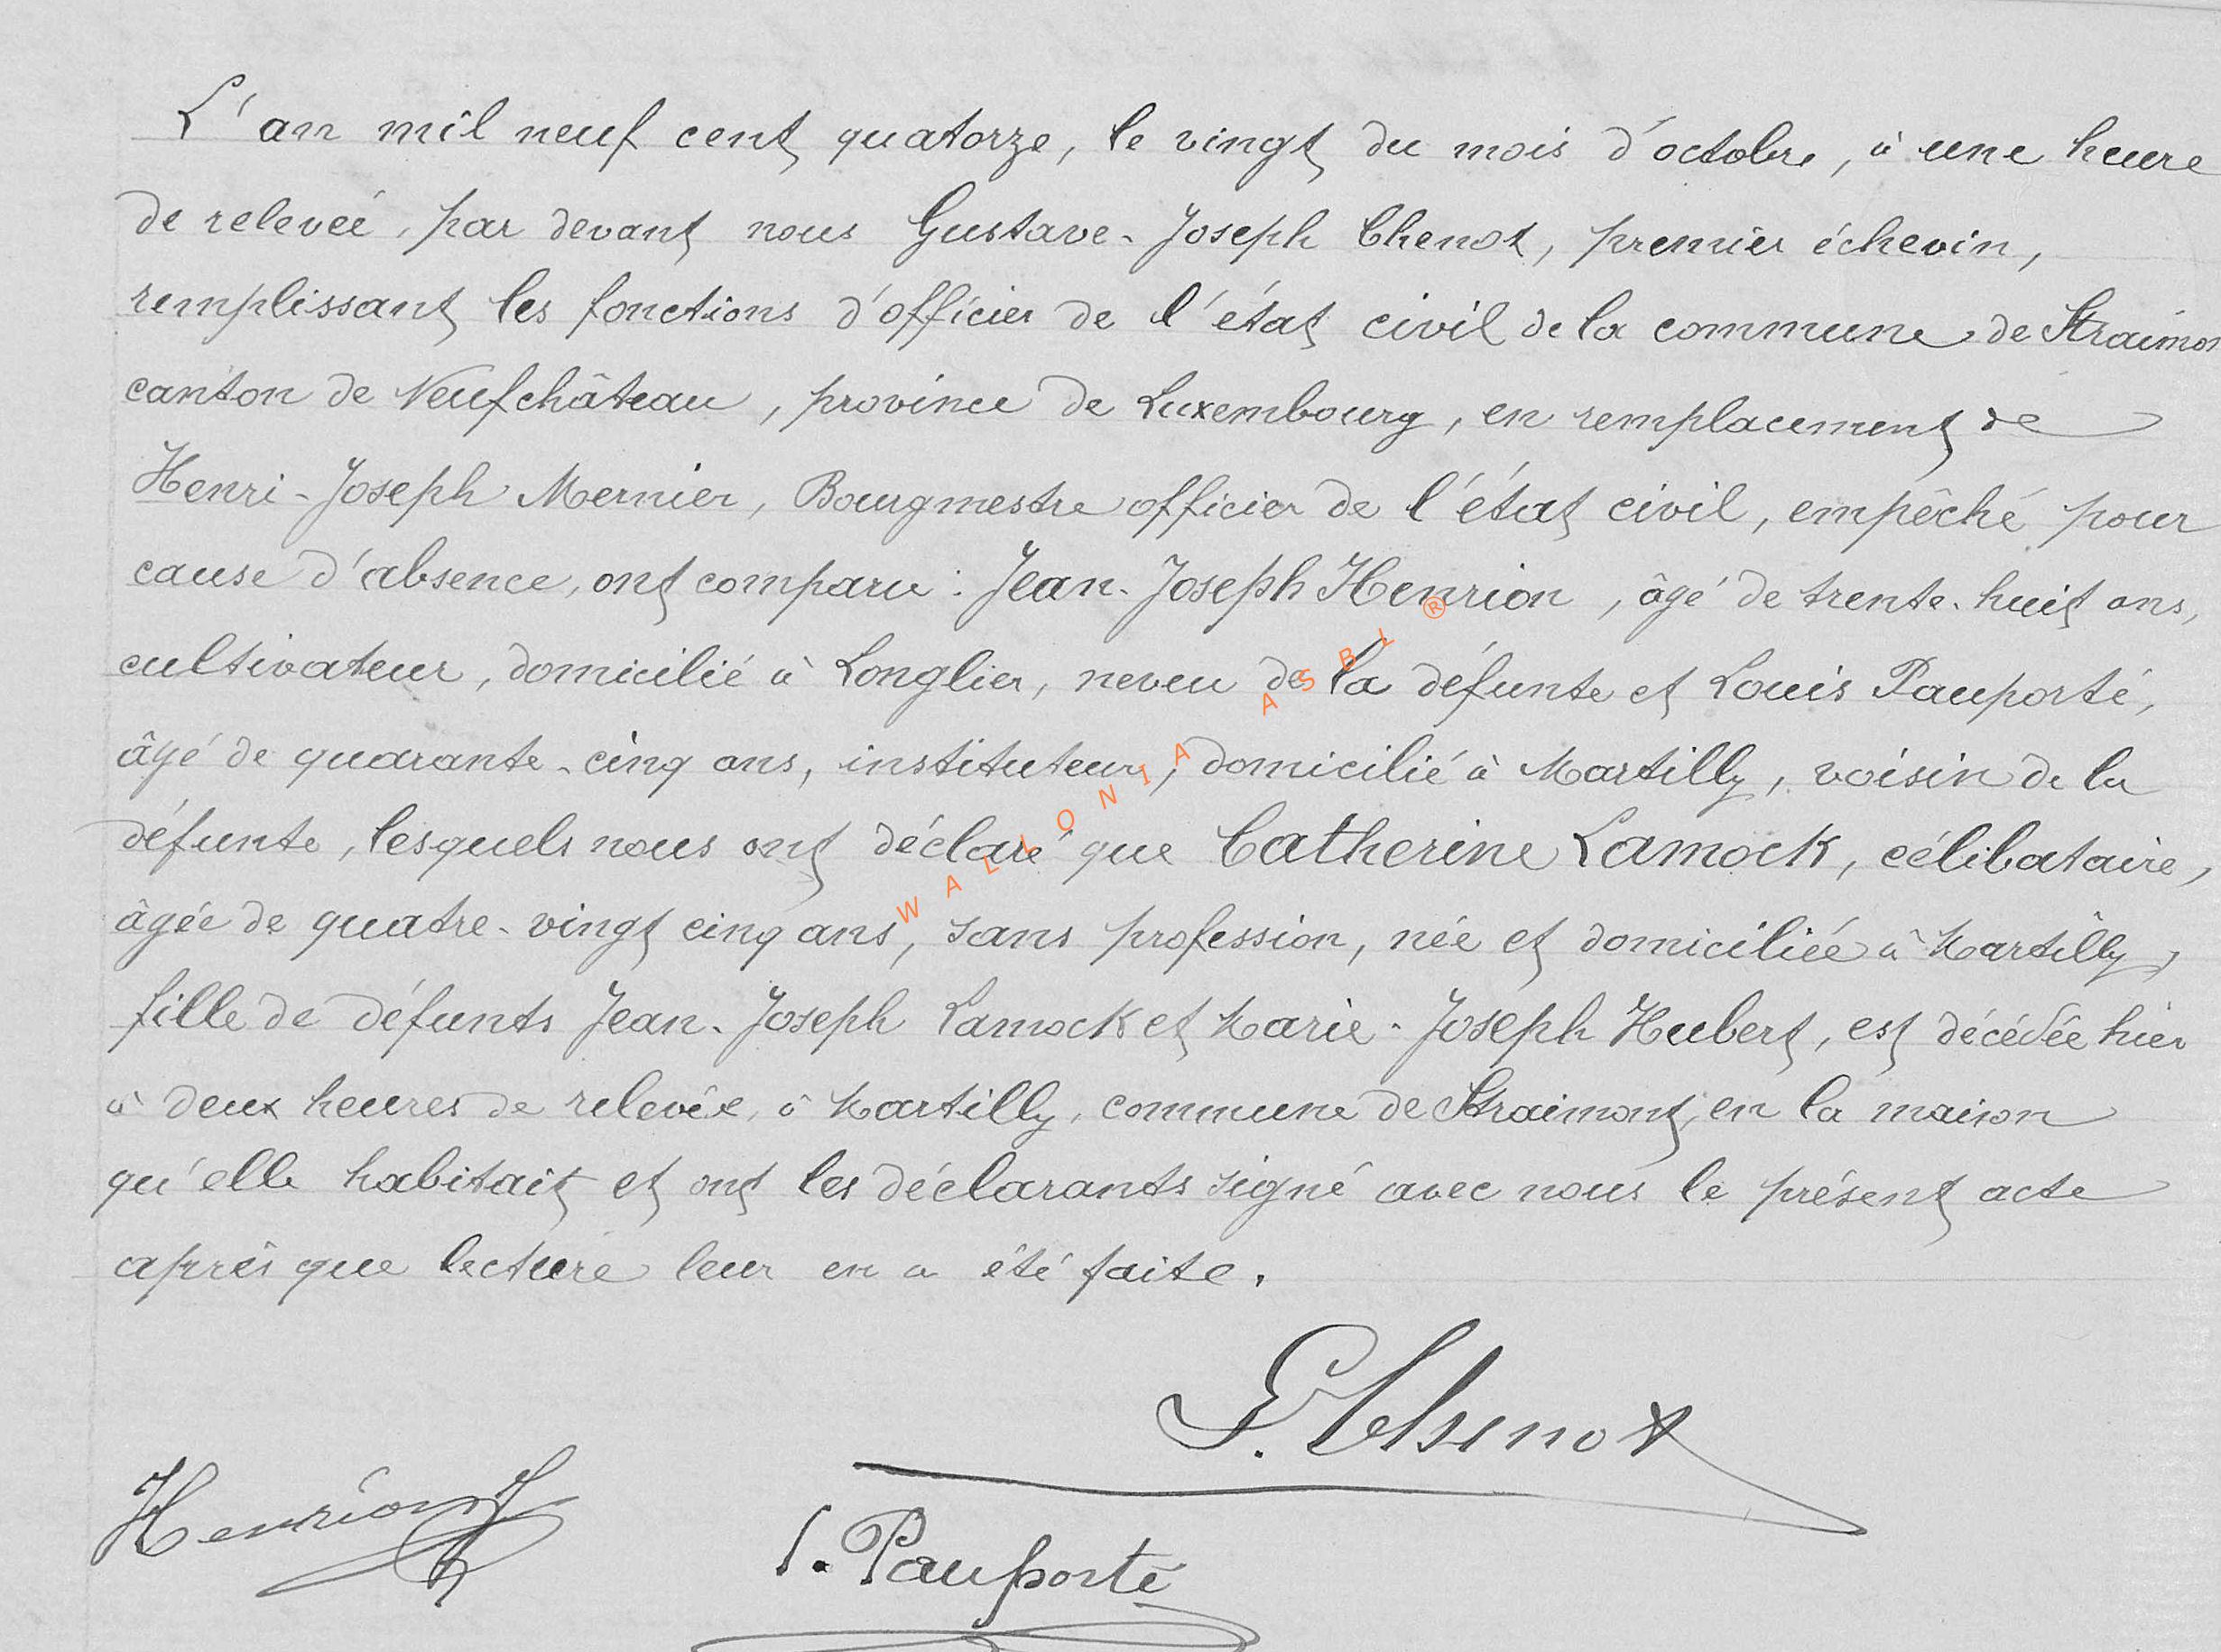 L'an mil neuf cent quatorze, le vingt du mois d'octobre, à une heure
de relevée, par devant nous Gustave-Joseph Chenot, premier échevin,
remplissant les fonctions d'officier de l'état civil de la commune de Straimon
canton de Neufchâteau, province de Luxembourg, en remplacement de
Henri-Joseph Mernier, Bourgmestre officier de l'état civil, empêché pour
cause d'absence, ont comparu : Jean-Joseph Henrion, âgé de trente-huit ans,
cultivateur, domicilié à Longlier, neveu de la défunte et Louis Pauporté,
âgé de quarante-cinq ans, instituteur, domicilié à Martilly, voisin de la
défunte, lesquels nous ont déclaré que Catherine Lamock, célibataire,
âgée de quatre-vingt cinq ans, sans profession, née et domiciliée à Martilly,
fille de défunts Jean-Joseph Lamock et Marie-Joseph Hubert, est décédée hier
à deux heures de relevée, à Martilly, commune de Straimont, en la maison
qu'elle habitait et ont les déclarants signé avec nous le présent acte
après que lecture leur en a été faite.
G. Chenot
Henrion J
L. Pauporté
WALLONIA ASBL ®